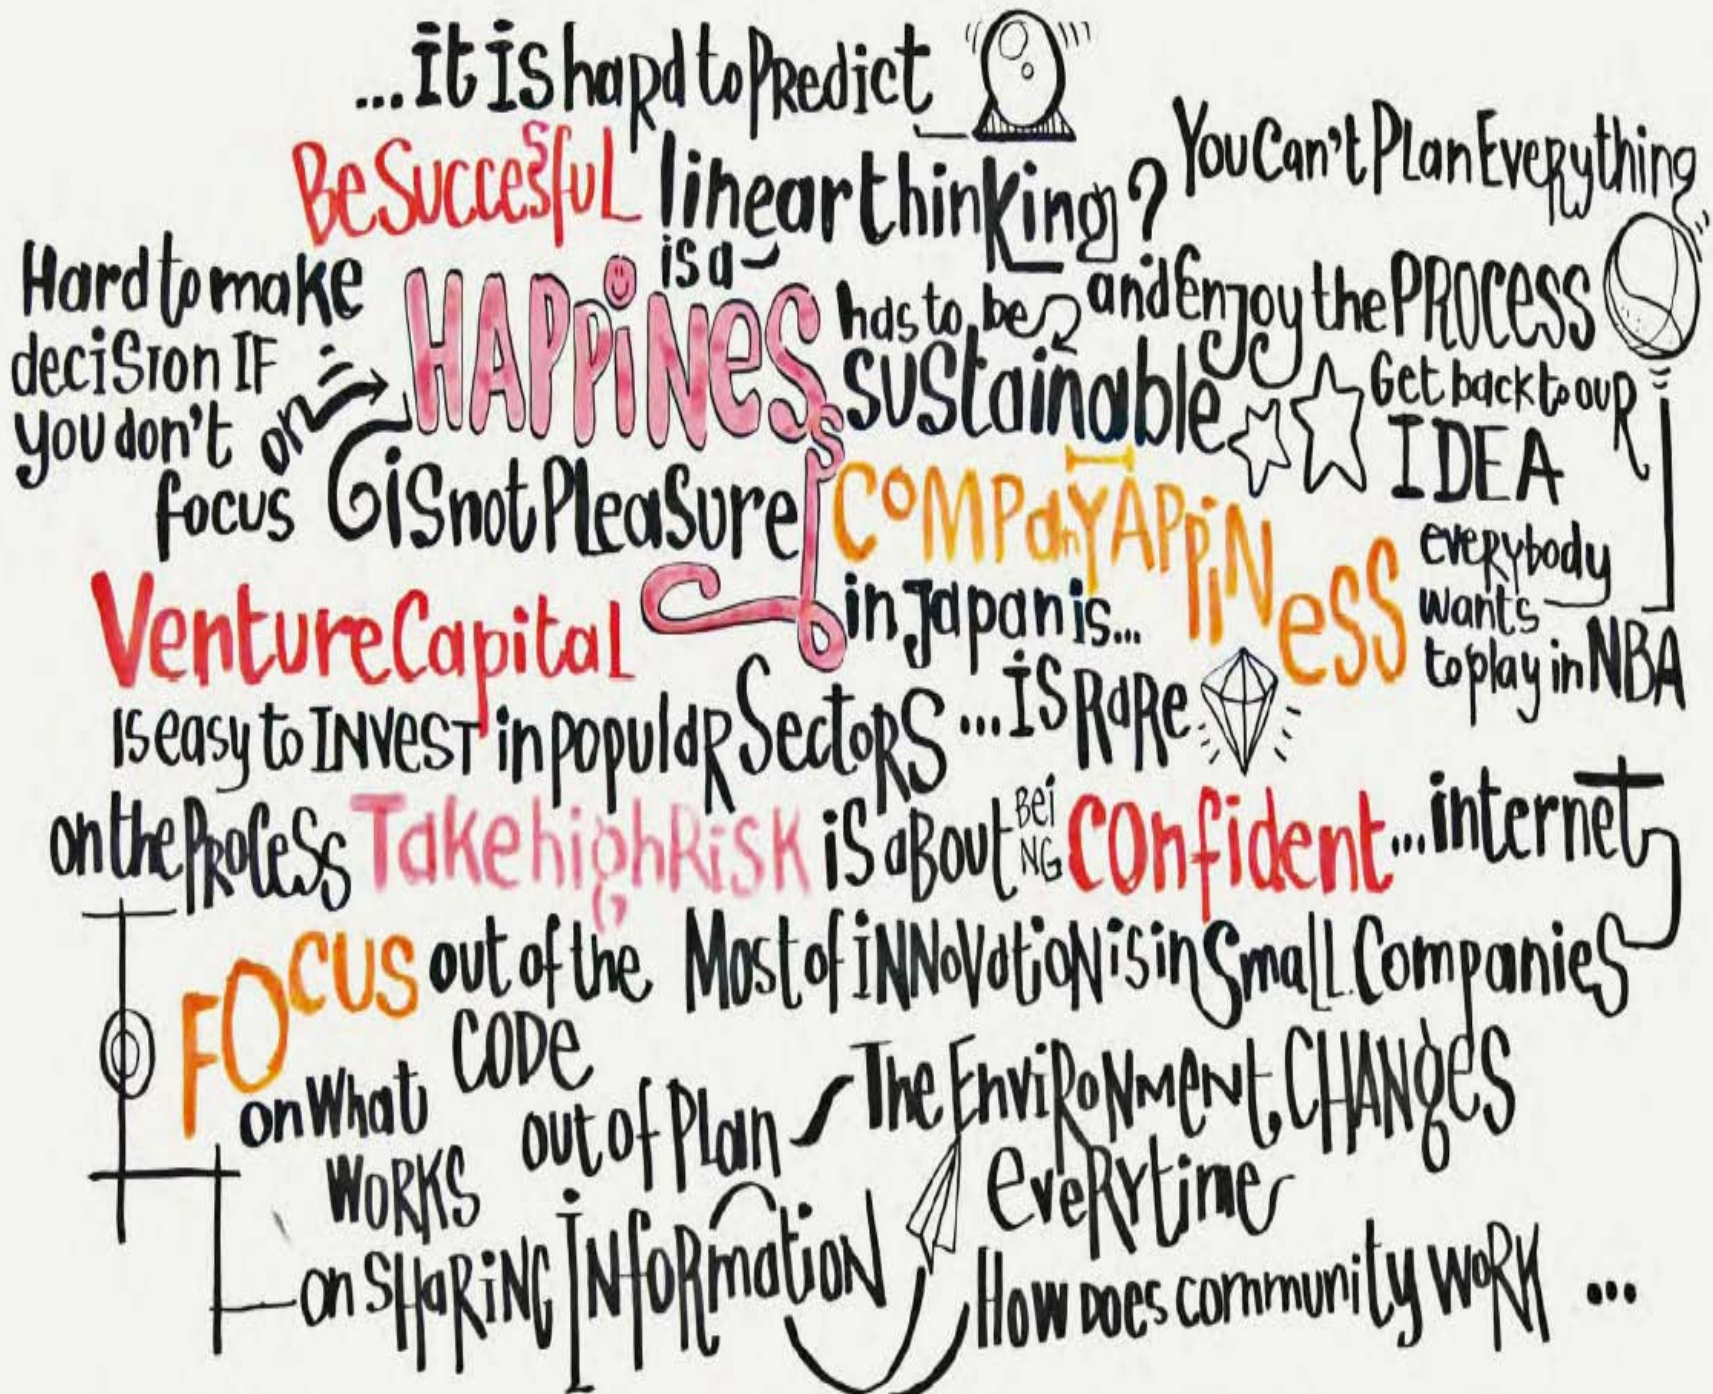 ...it is hard to Predict
Be Successful linear thinking?
You Can't Plan Everything
is a
Hard to make
decision IF
you don't
focus
on
HAPPiNESS
has to be
sustainable
and Enjoy the PROCESS
Get back to our
IDEA
is not Pleasure
COMPanYAPPiNESS
everybody
wants
to play in NBA
Venture Capital
in Japan is...
...iS RaRe
is easy to INVEST in populaR SectoRS
on the PRoCeSS
Take high RiSK
iS aBout BEiNG Confident
...internet
FOCUS
out of the
CODE
Most of iNNoVatioN is in Small Companies
on What
WORKS
out of Plan
The EnviRoNMENt CHANgES
eveRytime
on SHaRiNG INfoRmatioN
How Does community WoRK ...